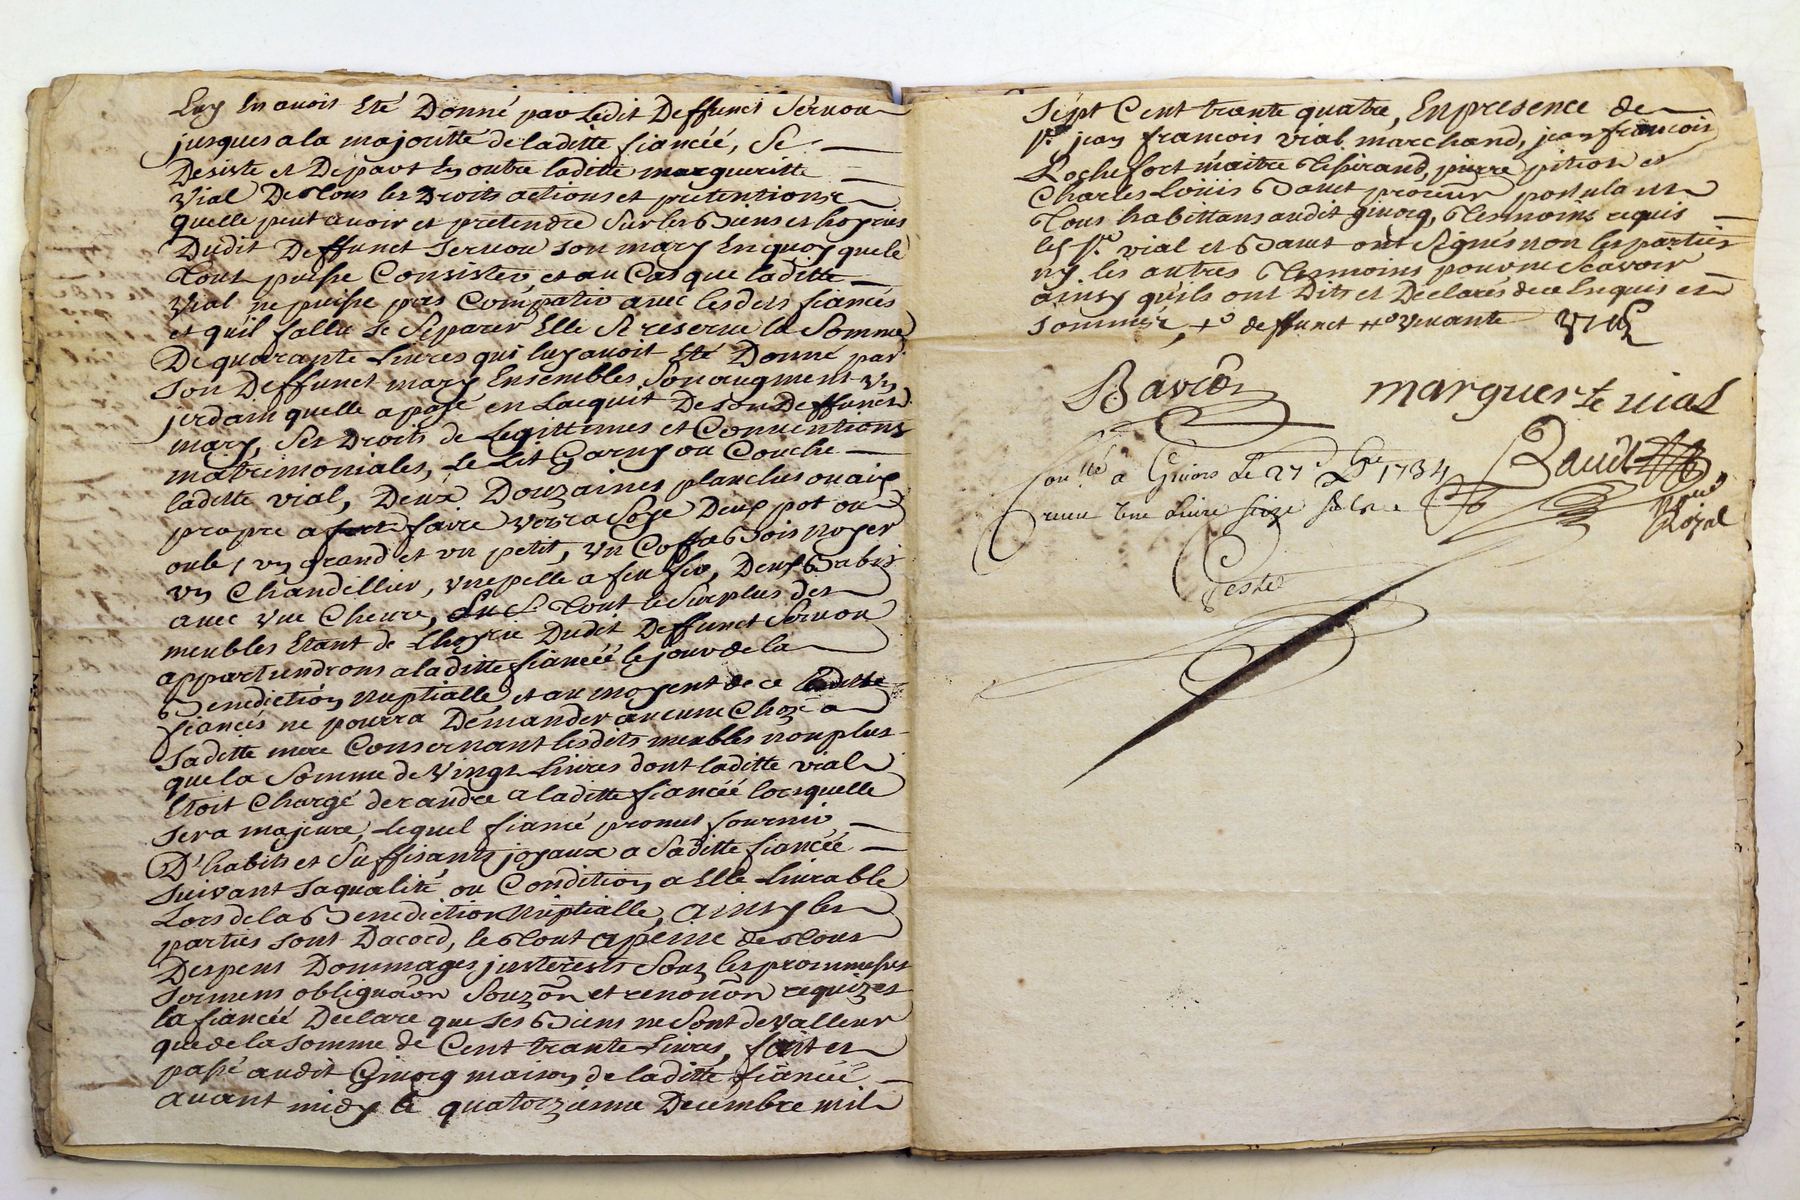 luy en avoit eté Donné par ledit Deffunct Servou
jusques a la majoritté de laditte fiancée, Se
Desiste et Depart en outre laditte margueritte
Vial De tous les Droits actions et pretentions
quelle peut avoir et pretendre Sur les Biens et hoyries
Dudit Deffunct Servou son mary En quoy que le
tout puisse Consister et au Cas que laditte
Vial ne puisse pas Compatir avec lesdits fiancés
et qu'il fallu se Separer Elle Se reserve la Somme
De quarante Livres qui luy avoit Eté Donné par
son Deffunct mary Ensembles Son augment un
jerdain quelle a pasé en Lacquit De son Deffunct
mary, Ses Droits de Legittimes et Conventions
matrimoniales, Le Lit Garny ou Couche
laditte vial, Deux Douzaines planches ou aix
propre a faire Deux pot ou
oule, un grand et un petit, un Coffre Bois noyer
un Chandellier, une pelle a feu fer, Deux habis
avec une Chevre, Tout le Surplus des
meubles Etant de Lhoyrie Dudit Deffunct Servou
appartiendrons a laditte fiancée le jour de la
Benediction Nuptialle et au moyent de ce
fiancés ne pourra Demander aucune Chose a
Saditte mere Consernant lesdits meubles non plus
que la Somme de Vingt Livres dont laditte vial
Etoit Chargé de randre a laditte fiancée lorsquelle
sera majeure, lequel fiancé promet fournir
D'habits et Suffisants joyaux a Saditte fiancée
suivant sa qualité ou Condition a Elle Livrable
Lors de la Benediction Nuptialle, ainsy les
parties sont Dacord, le Tout apeine de Tous
Despens Dommages jnterests Sous les prommesses
sermens obligãon Souzõn et renonõn requizes
la fiancée Declare que ses Biens ne Sont de valleur
que de la somme de Cent trante Livres, fait et
passé audit Givors maison de laditte fiancée
avant midy le quatorzieme Decembre mil
sept Cent trante quatre, En presence de
Sr. jean francois vial marchand, jean francois
Rochefort maitre Tisirand, pierre pition et
Charles Loüis Bauet procureur postulant
Tous habittans audit givors, Tesmoins requis
les Srs. vial et Bauet ont Signés non les parties
ny les autres Tesmoins pour ne Scavoir
ainsy qu'ils ont Dits et Declarés de ce Enquis et
sommés, +o deffunct #o Vivante
Baviõn marguerte vial
Conllé a Givors Le 27e Xbre 1734 Bauet
receu une Livre seize sols
nore Royal